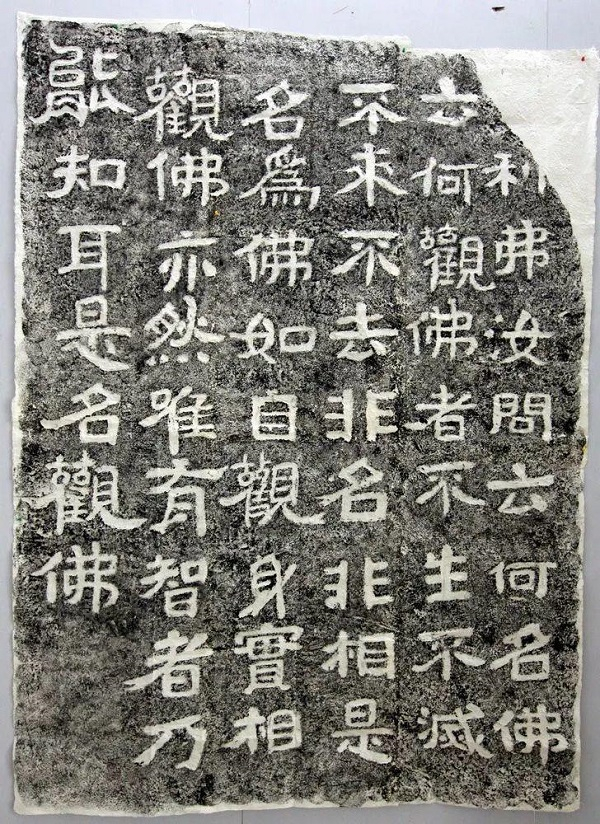 利弗汝問云何名佛
云何觀佛者不生不滅
不来不去非名非相是
名爲佛如自觀身實相
觀佛亦然唯有智者乃
能知耳是名觀佛